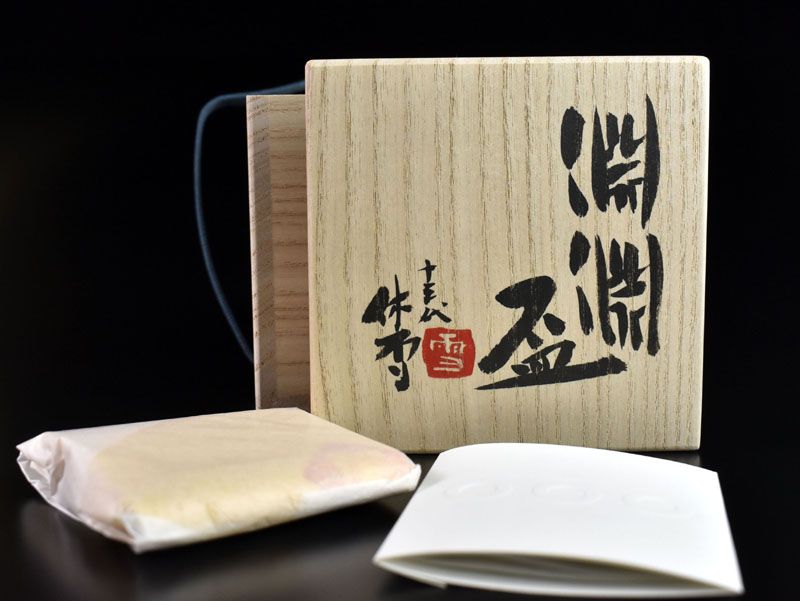 淵淵
盃
十三代
休雪
雪